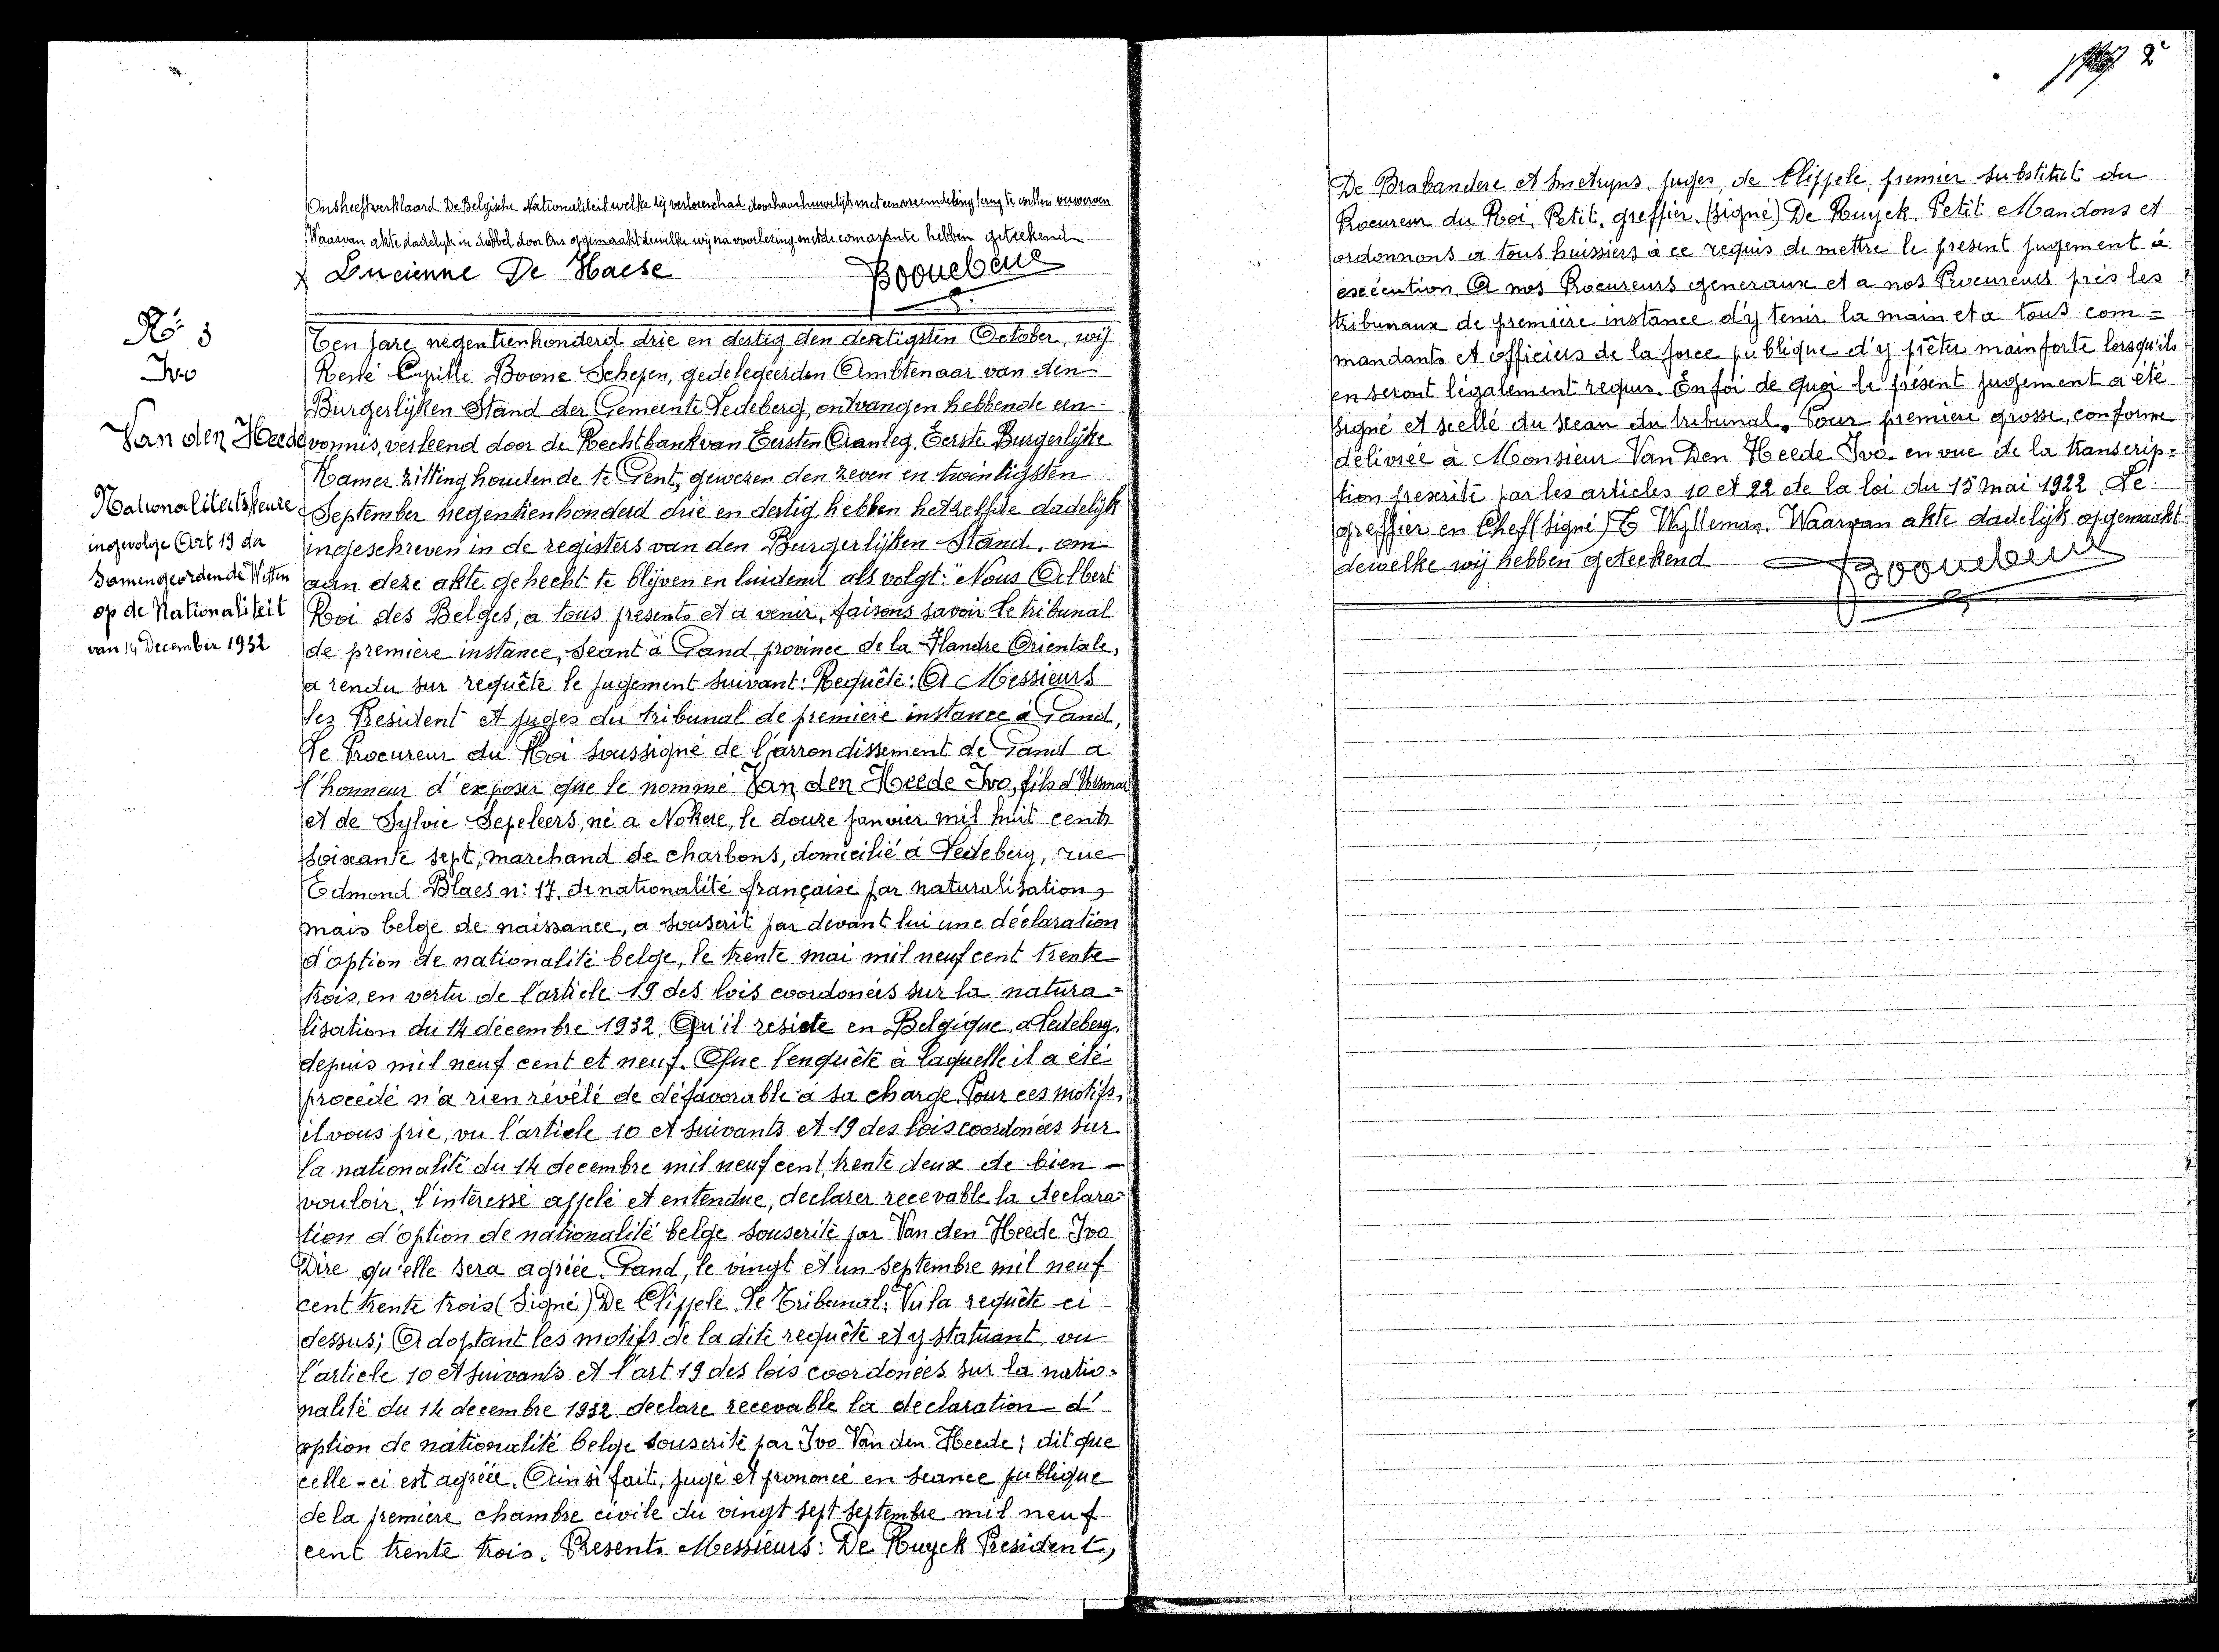 Ons heeft verklaard De Belgische Nationaliteit welke zij verloren had door haar huwelijk met een vreemdeling terug te willen verwerven
Waarvan akte dadelijk in dubbel door Ons opgemaakt dewelke wij na voorlezing met de comparante hebben geteekend
x Lucienne De Haese
Nr 3
Ivo
Van den Heede
Nationaliteitskeuze
ingevolge Art 19 der
Samengeordende Wetten
op de Nationaliteit
van 14 December 1932
Ten jare negentienhonderd drie en dertig den dertigsten October, wij
René Cyrille Boone Schepen, gedelegeerden Ambtenaar van den
Burgerlijken Stand der Gemeente Ledeberg, ontvangen hebbende een
vonnis, verleend door de Rechtbank van Eersten Aanleg, Eerste Burgerlijke
Kamer zitting houdende te Gent, gewezen den zeven en twintigsten
September negentienhonderd drie en dertig, hebben hetzelfde dadelijk
ingeschreven in de registers van den Burgerlijken Stand, om
aan deze akte gehecht te blijven en luidend als volgt: "Nous Albert
Roi des Belges, a tous présents et a venir, faisons savoir Le tribunal
de première instance, séant à Gand, province de la Flandre Orientale,
a rendu sur requête le jugement suivant: Requête: A Messieurs
les President et juges du tribunal de première instance à Gand,
Le Procureur du Roi soussigné de l'arrondissement de Gand a
l'honneur d'exposer que le nommé Van den Heede Ivo, fils d'
et de Sylvie Sepeleers, né a Nokere, le douze janvier mil huit cent
soixante sept, marchand de charbons, domicilié à Ledeberg, rue
Edmond Blaes n: 17, de nationalité française par naturalisation,
mais belge de naissance, a souscrit par devant lui une déclaration
d'option de nationalité belge, le trente mai mil neuf cent trente
trois, en vertu de l'article 19 des lois coordonées sur la natura=
lisation du 14 décembre 1932. Qu'il reside en Belgique, a Ledeberg,
depuis mil neuf cent et neuf. Que l'enquête à laquelle il a été
procédé n'a rien révélé de défavorable à sa charge. Pour ces motifs,
il vous prie, vu l'article 10 et suivants et 19 des lois coordonées sur
la nationalité du 14 decembre mil neuf cent trente deux de bien -
vouloir, l'intéressé applé et entendue, declarer recevable la declara=
tion d'option de nationalité belge souscrite par Van den Heede Ivo
Dire qu'elle sera agréée. Gand, le vingt et un septembre mil neuf
cent trente trois (Signé) De Clippele. Le Tribunal: Vu la requête ci
dessus; Adoptant les motifs de la dite requête et y statuant, vu
l'article 10 et suivants et l'art 19 des lois coordonées sur la natio=
nalité du 14 decembre 1932. declare recevable la declaration d'
option de nationalité belge souscrite par Ivo Van den Heede; dit que
celle-ci est agréée. Ainsi fait, jugé et prononcé en seance publique
de la première chambre civile du vingt sept septembre mil neuf
cent trente trois. Presents Messieurs: De Ruyck President,
2e
De Brabandere et Smetryns, juges, de Clippele, premier substitut du
Procureur du Roi, Petit, greffier. (signé) De Ruyck. Petit. Mandons et
ordonnons a tous huissiers à ce requis de mettre le present jugement à
exécution. A nos Procureurs generaux et a nos Procureurs près les
tribunaux de premiere instance d'y tenir la main et a tous com=
mandants et officiers de la force publique d'y prêter main forte lorsqu'ils
en seront légalement requis. En foi de quoi le présent jugement a été
signé et scellé du sceau du tribunal. Pour première grosse, conforme
délivrée à Monsieur Van Den Heede Ivo en vue de la transcrip=
tion prescrite par les articles 10 et 22 de la loi du 15 mai 1922. Le
greffier en Chef (signé) E Wylleman. Waarvan akte dadelijk opgemaakt
dewelke wij hebben geteekend